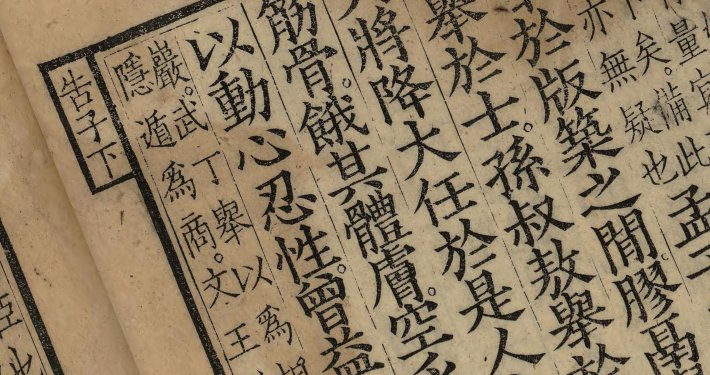 量官
矣。備此
亦無疑也
孟子
於版築之間膠鬲
舉於士。孫叔敖舉於
將降大任於是人
筋骨。餓其體膚。空
以動心忍性。曾益
巖。武丁舉以爲
隱遁爲商。文王
告子下